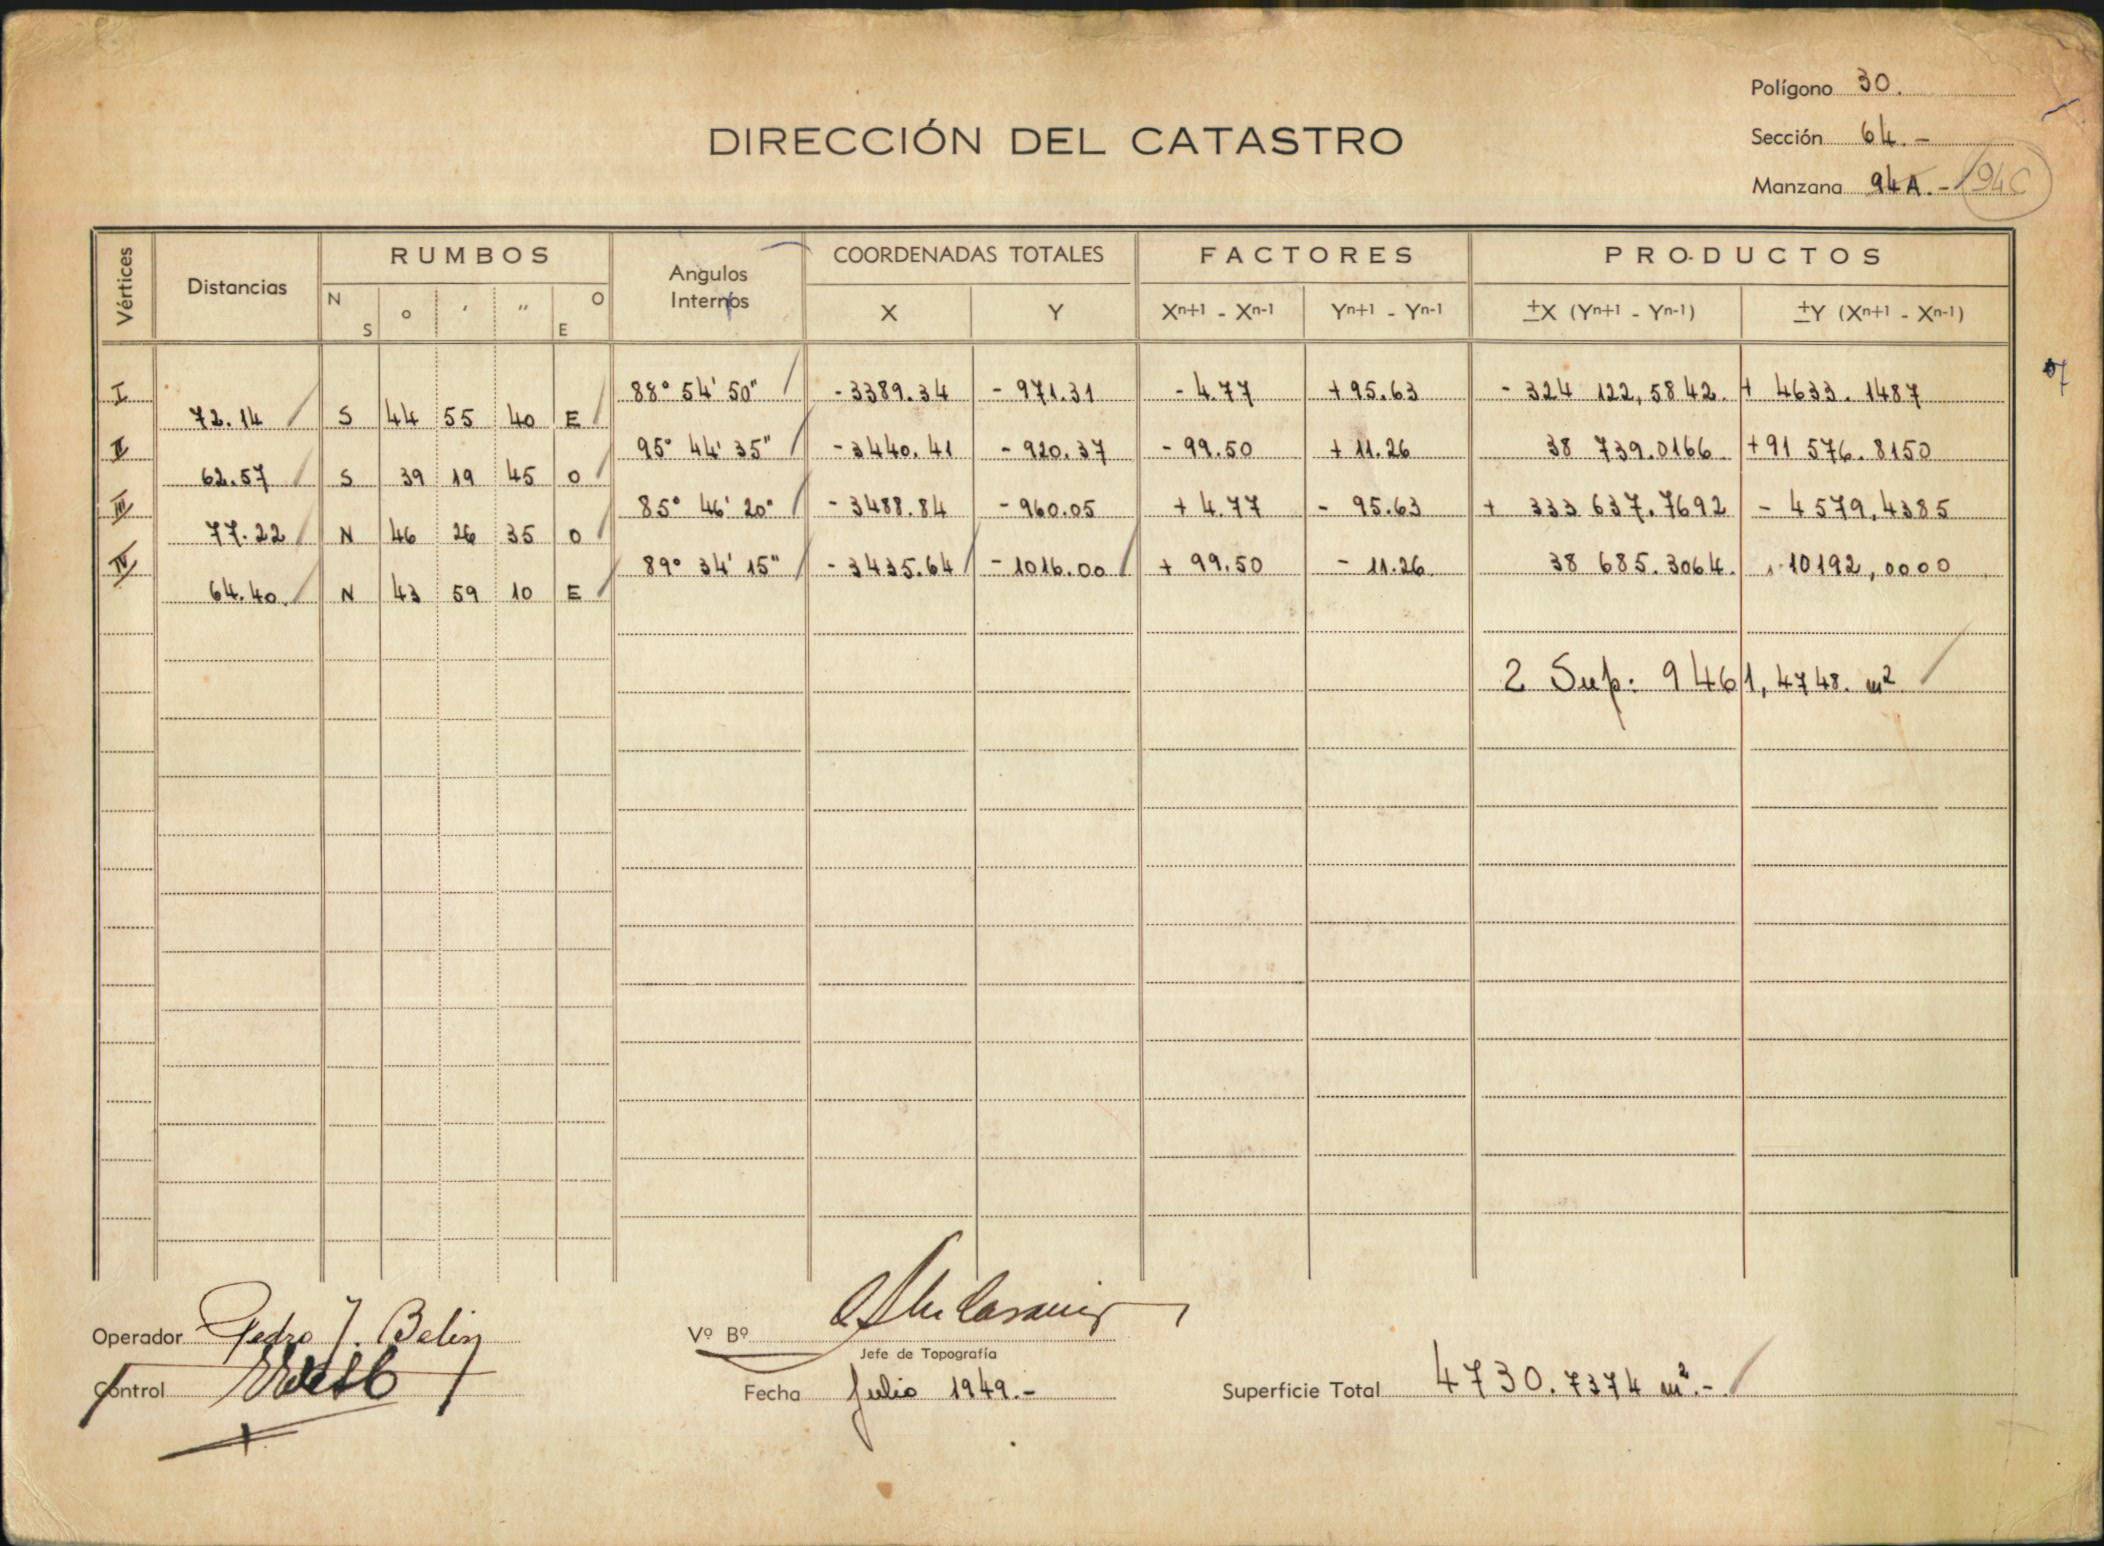 Polígono 30.
DIRECCIÓN DEL CATASTRO
Sección 64.-
Manzana 94A.- 94C
Vértices Distancias RUMBOS Angulos Internos COORDENADAS TOTALES FACTORES PRODUCTOS
N S o ' '' O E X Y Xn+1 - Xn-1 Yn+1 - Yn-1 ±X (Yn+1 - Yn-1) ±Y (Xn+1 - Xn-1)
I 88° 54' 50" - 3389.34 - 971.31 - 4.77 + 95.63 - 324 122,5842. + 4633.1487
72.14 S 44 55 40 E
II 95° 44' 35" - 3440.41 - 920.37 - 99.50 + 11.26 38 739.0166 + 91 576.8150
62.57 S 39 19 45 O
III 85° 46' 20" - 3488.84 - 960.05 + 4.77 - 95.63 + 333 637.7692 - 4579,4385
77.22 N 46 26 35 O
IV 89° 34' 15" - 3435.64 - 1016.00 + 99.50 - 11.26 38 685.3064. 10192,0000
64.40 N 43 59 10 E
2 Sup: 9461,4748. m²
Operador Pedro J. Belin
Vº Bº
Jefe de Topografía
Control
Fecha Julio 1949.-
Superficie Total 4730.7374 m².-